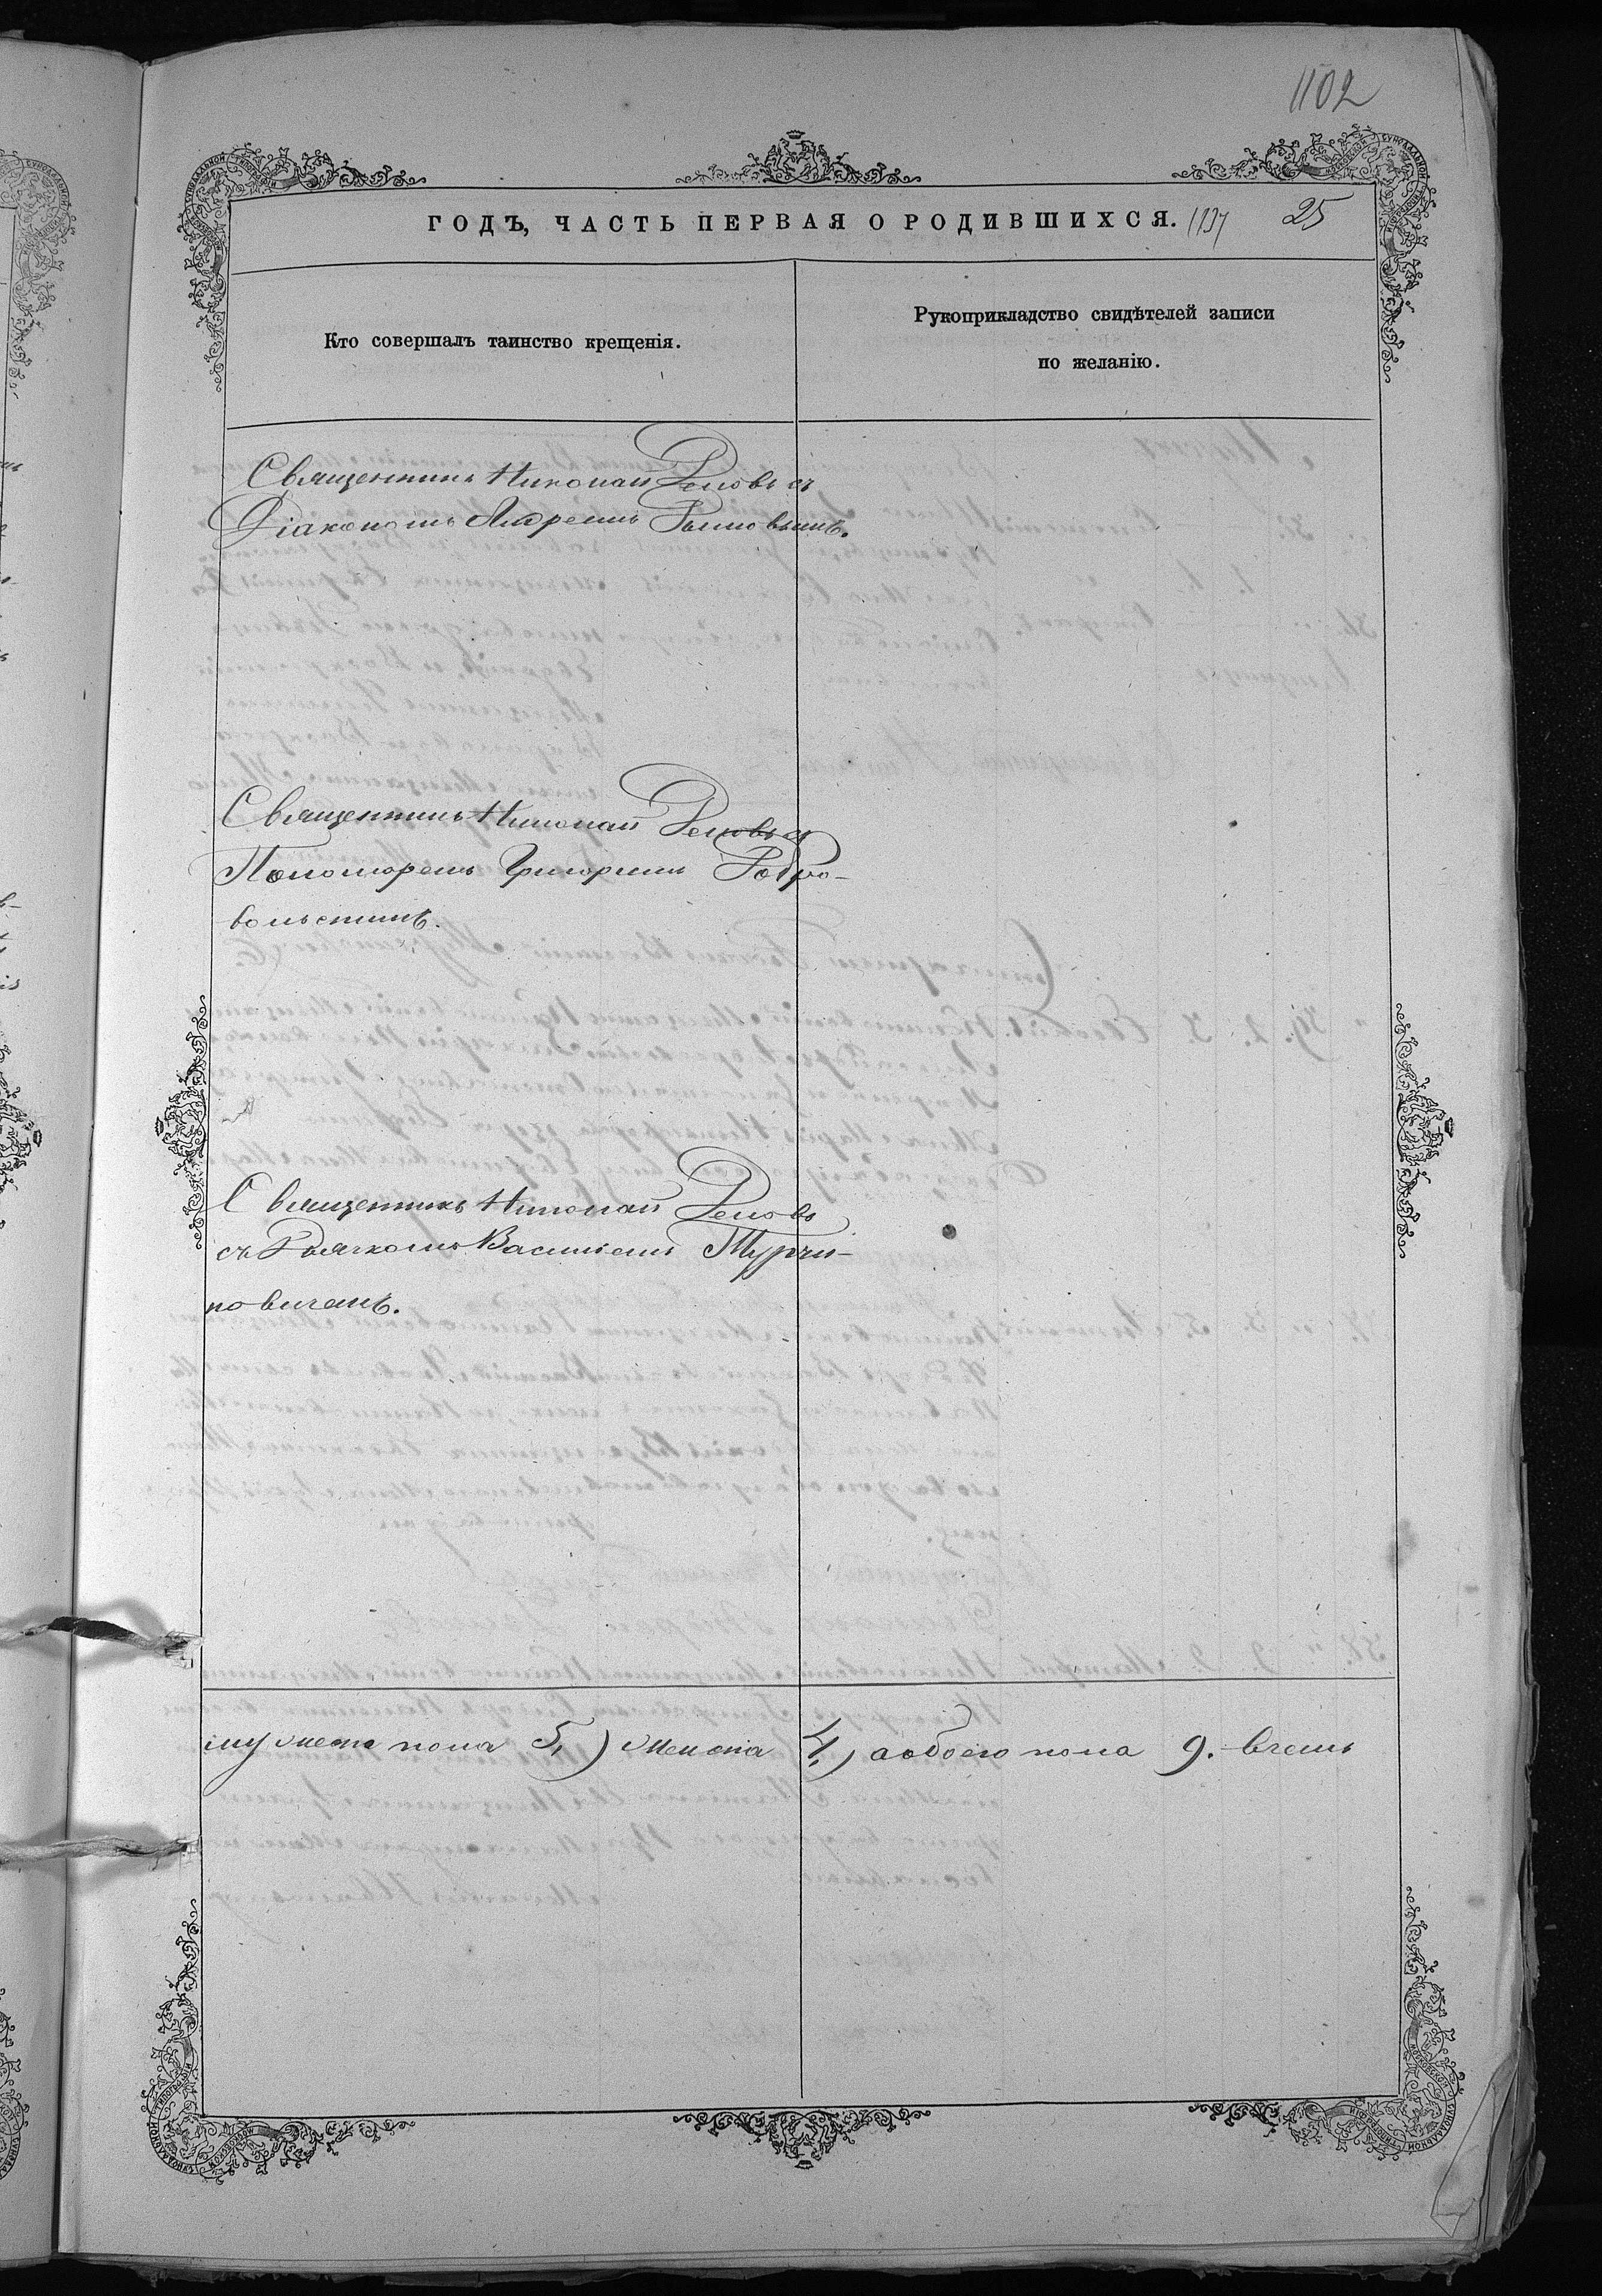 1102
ГОДЪ, ЧАСТЬ ПЕРВАЯ О РОДИВШИХСЯ. 25
Кто совершалъ таинство крещенія.
Рукоприкладство свидѣтелей записи
по желанію.
Священникъ Николай Реповъ съ
Діакономъ Андреемъ
Священникъ Николай Реповъ съ
Пономоремъ Григоріемъ Добро-
вольскимъ.
Священникъ Николай Реповъ
съ Дьячкомъ Василіемъ Турчи-
новичемъ.
мужеска пола 5,) женска 4,) а обоего пола 9. въ чемъ